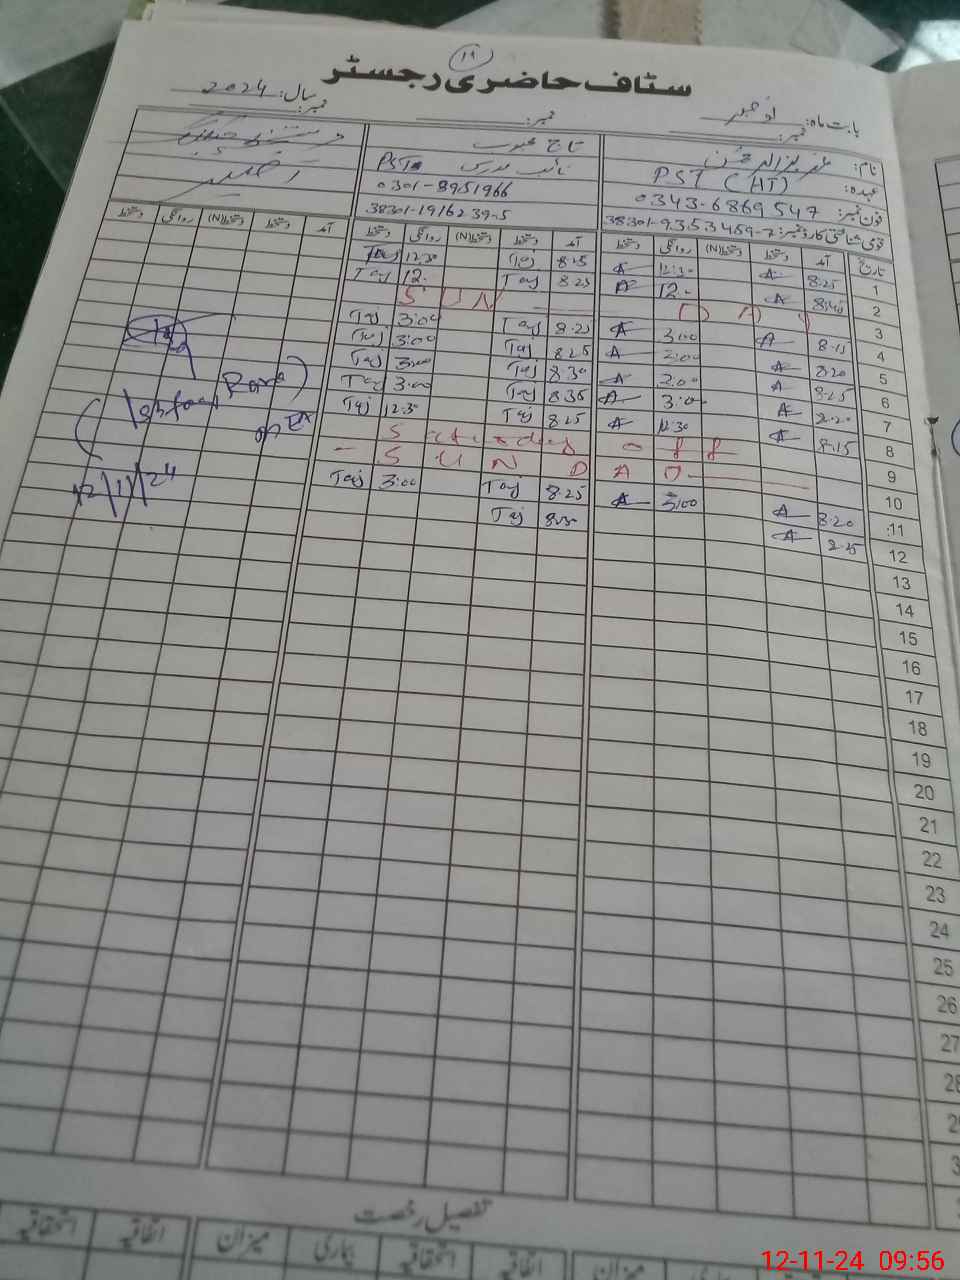 ۱۹
سٹاف حاضری رجسٹر
بابت ماہ: نومبر نمبر: سال: 2024
نمبر: نمبر:
نام: عزیز الرحمٰن
تاج محبوب
عہدہ: PST (HT)
نائب مدرس PST
فون نمبر: 0343-6869547
0301-8951966
قومی شناختی کارڈ نمبر: 38301-9353459-7
38301-1916239-5
تاریخ آمد دستخط دستخط(N) روانگی دستخط آمد دستخط دستخط(N) روانگی دستخط آمد دستخط دستخط(N) روانگی دستخط
1 8.25 A 12:30 A 8.25 Taj 12.30 Taj
2 8:40 A 12.- A 8.25 Taj 12.- Taj
3 S U N D A Y
4 8.15 A 3:00 A 8.25 Taj 3:00 Taj
5 8.20 A 3:00 A 8.25 Taj 3:00 Taj
6 8.25 A 3:00 A 8.30 Taj 3:00 Taj
7 8.20 A 3:00 A 8.35 Taj 3:00 Taj
8 8.15 A 12:30 A 8.25 Taj 12.30 Taj
9 Saturday off
10 S U N D A
11 8.20 A 3:00 A 8.25 Taj 3:00 Taj
12 8.25 A 8.30 Taj
(Ishfaq Rana)
12/11/24
13
14
15
16
17
18
19
20
21
22
23
24
25
26
27
28
تفصیل رخصت
اتفاقیہ استحقاقیہ بیماری میزان اتفاقیہ استحقاقیہ
12-11-24 09:56